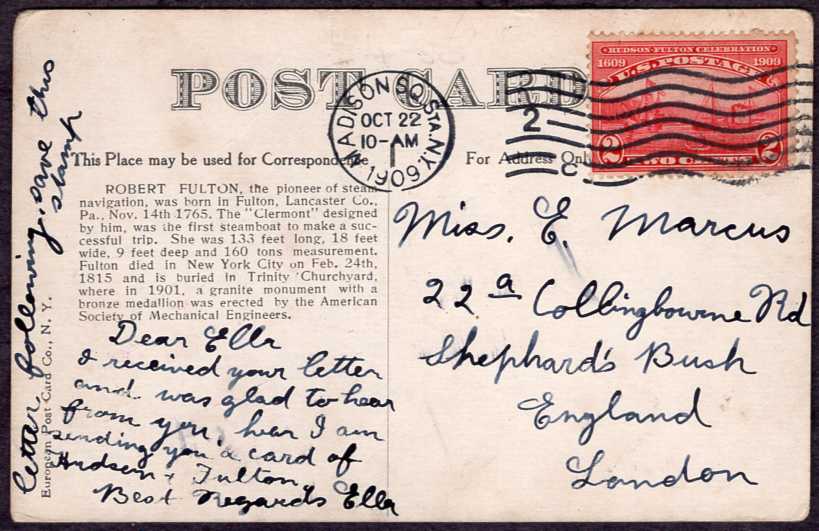 POST CARD
HUDSON-FULTON CELEBRATION
1609 1909
U.S. POSTAGE
2 TWO CENTS 2
MADISON SQ. STA. N.Y.
OCT 22
10-AM
1
1909
2
C
This Place may be used for Correspondence
For Address Only
ROBERT FULTON, the pioneer of steam
navigation, was born in Fulton, Lancaster Co.,
Pa., Nov. 14th 1765. The "Clermont" designed
by him, was the first steamboat to make a suc-
cessful trip. She was 133 feet long, 18 feet
wide, 9 feet deep and 160 tons measurement.
Fulton died in New York City on Feb. 24th,
1815 and is buried in Trinity Churchyard,
where in 1901, a granite monument with a
bronze medallion was erected by the American
Society of Mechanical Engineers.
Dear Ella
I received your letter
and was glad to hear
from you, hear I am
sending you a card of
Hudson & Fulton,
Best Regards Ella
letter following. save this
stamp
European Post Card Co., N. Y.
Miss. E. Marcus
22 a Collingbourne Rd
Shephard's Bush
England
London